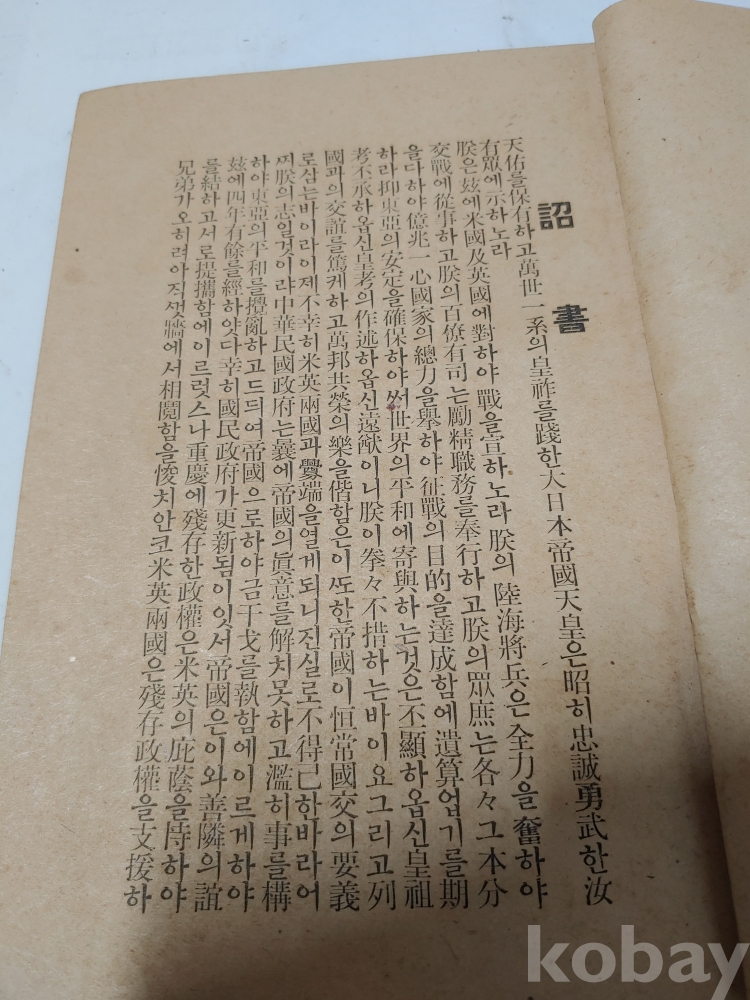 詔書
天佑를保有하고萬世一系의皇祚를踐한大日本帝國天皇은昭히忠誠勇武한汝
有眾에示하노라
朕은玆에米國及英國에對하야戰을宣하노라朕의陸海將兵은全力을奮하야
交戰에從事하고朕의百僚有司는勵精職務를奉行하고朕의眾庶는各々그本分
을다하야億兆一心國家의總力을擧하야征戰의目的을達成함에遺算업기를期
하라抑東亞의安定을確保하야써世界의平和에寄與하는것은丕顯하옵신皇祖
考丕承하옵신皇考의作述하옵신遠猷이니朕이拳々不措하는바이요그리고列
國과의交誼를篤케하고萬邦共榮의樂을偕함은이또한帝國이恒常國交의要義
로삼는바이라이제不幸히米英兩國과釁端을열게되니진실로不得已한바라어
찌朕의志일것이랴中華民國政府는曩에帝國의眞意를解치못하고濫히事를構
하야東亞의平和를攪亂하고드듸여帝國으로하야금干戈를執함에이르게하야
玆에四年有餘를經하얏다幸히國民政府가更新됨이잇서帝國은이와善隣의誼
를結하고서로提携함에이르럿스나重慶에殘存한政權은米英의庇蔭을恃하야
兄弟가오히려아직牆에서相鬩함을悛치안코米英兩國은殘存政權을支援하
kobay